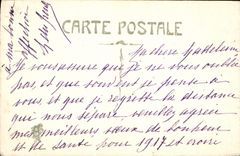 CARTE POSTALE
à ma bonne
affection
Ma chère
Je vous assure que je ne vous oublie
pas, et que souvent je pense à
vous et que je regrette la distance
qui nous sépare veuillez agréer
mes meilleurs vœux de bonheur
et de santé pour 1917 et croire